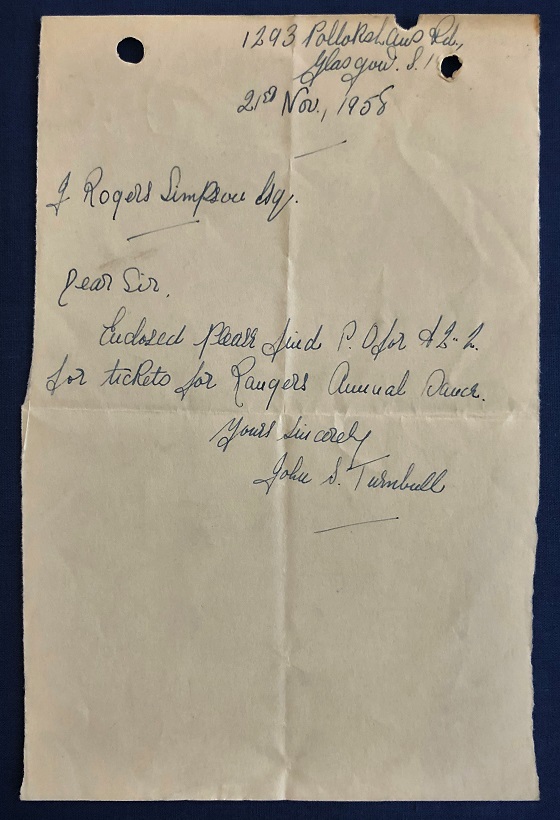 1293 Pollokshaws Rd.,
Glasgow. S.1
21st Nov., 1958
J Rogers Simpson Esq.
Dear Sir,
Enclosed please find P.O for £2-2.
for tickets for Rangers Annual Dance.
Yours Sincerely
John S. Turnbull